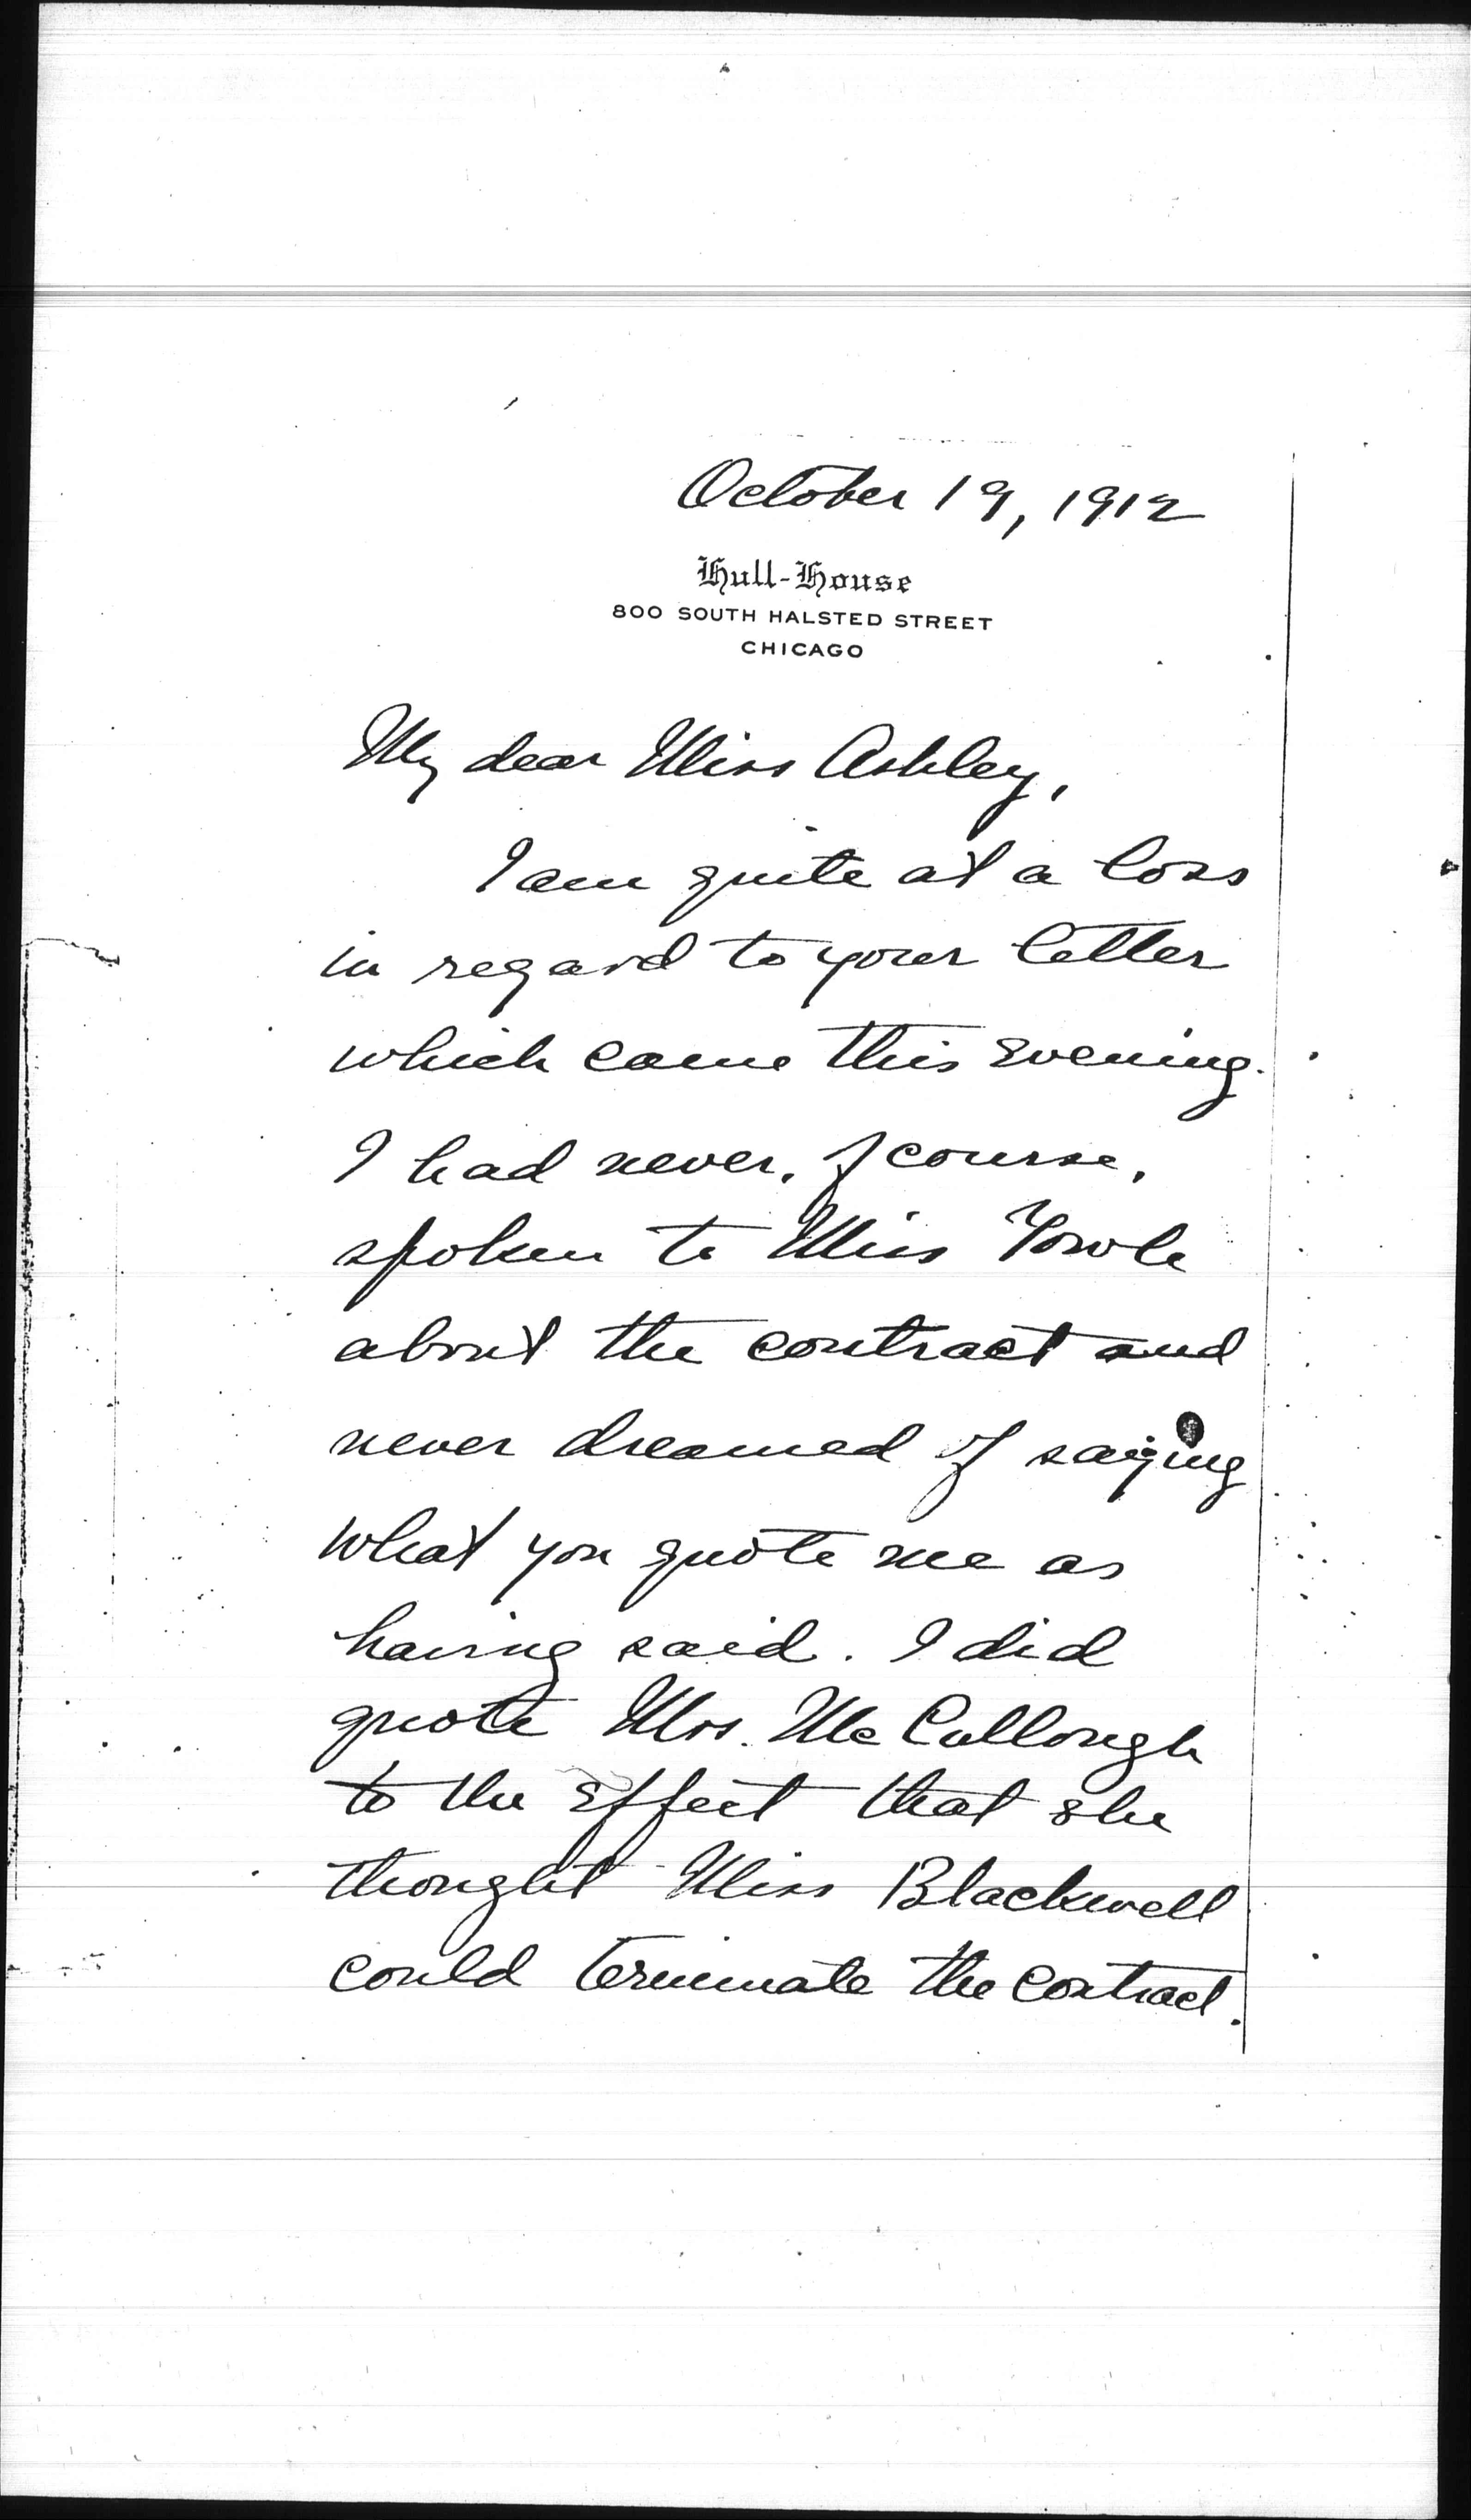 October 19, 1912
Hull-House
800 SOUTH HALSTED STREET
CHICAGO
My dear Miss Ashley,
I am quite at a loss
in regard to your letter
which came this evening.
I had never, of course,
spoken to Miss
about the contract and
never dreamed of saying
what you quote me as
having said. I did
quote Mrs. McCullough
to the effect that she
thought Miss Blackwell
could terminate the contract.